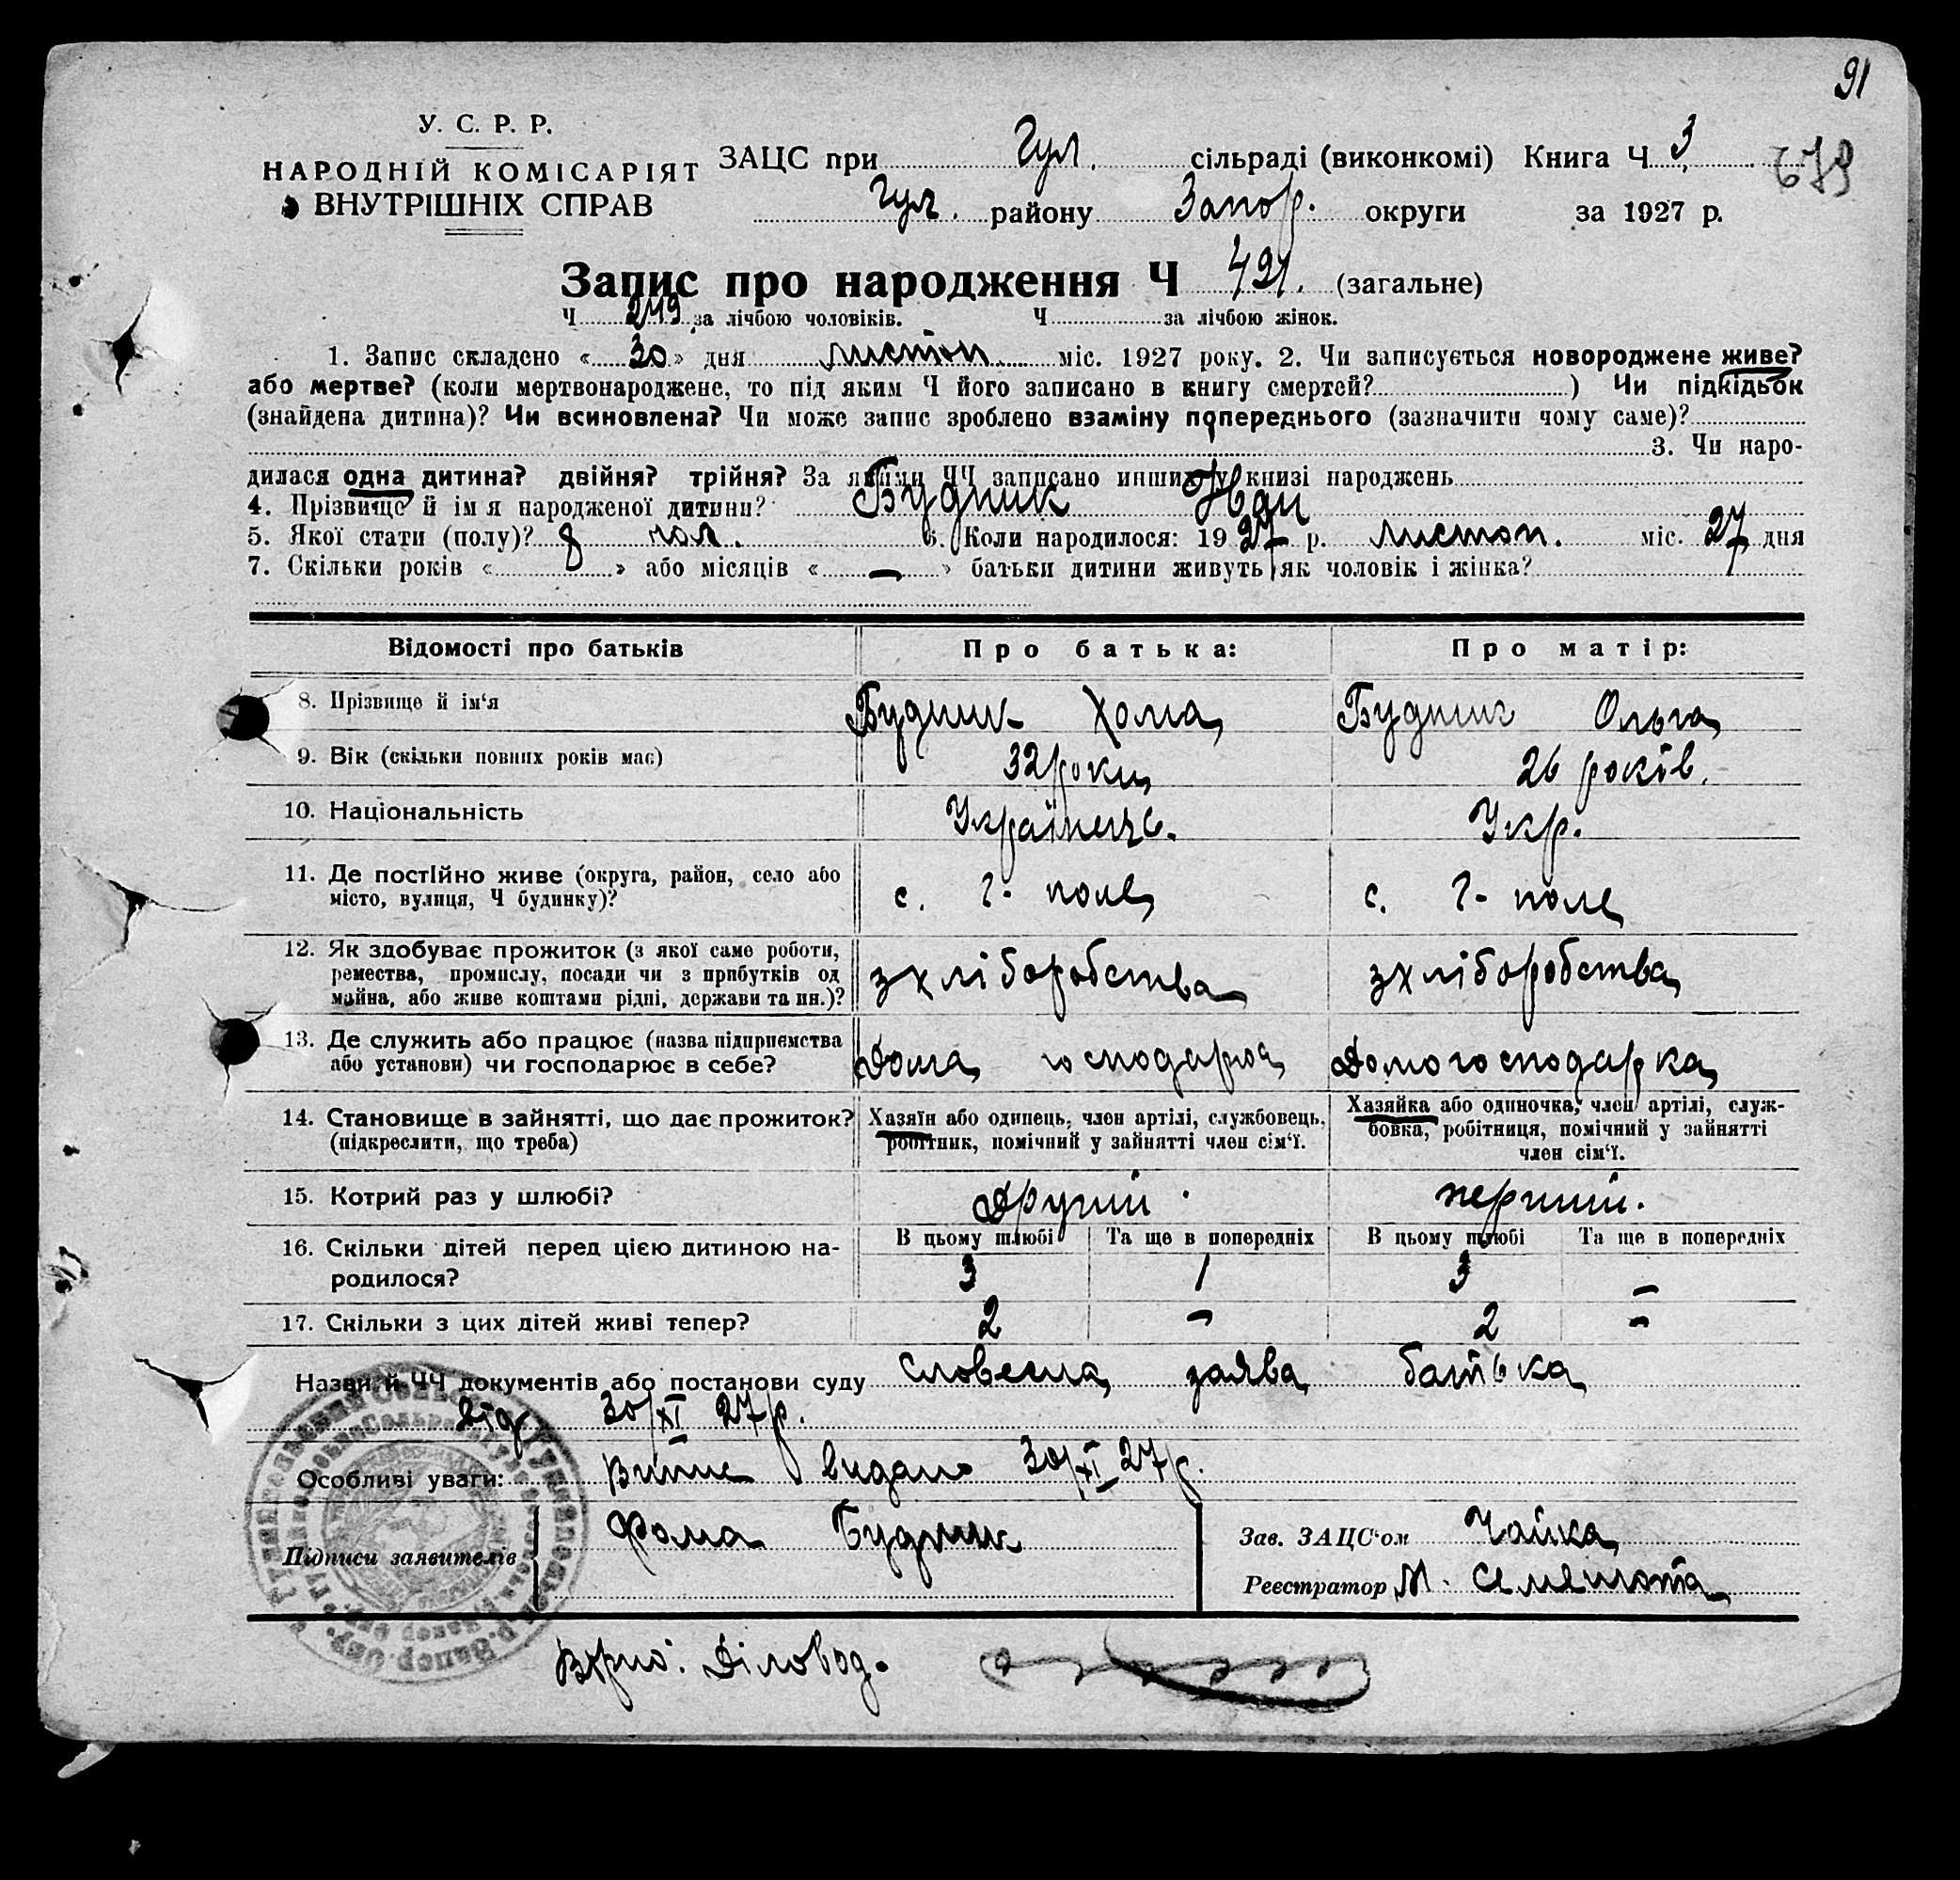 91
У. С. Р. Р.
НАРОДНІЙ КОМІСАРІЯТ
ВНУТРІШНІХ СПРАВ
ЗАЦС при Гул. сільраді (виконкомі) Книга Ч 3 679
Гул. району Запор. округи за 1927 р.
Запис про народження Ч 491. (загальне)
Ч 249 за лічбою чоловіків. Ч за лічбою жінок.
1. Запис складено « 30 » дня листоп. міс. 1927 року. 2. Чи записується новороджене живе?
або мертве? (коли мертвонароджене, то під яким Ч його записано в книгу смертей? ) Чи підкідьок
(знайдена дитина)? Чи всиновлена? Чи може запис зроблено взаміну попереднього (зазначити чому саме)?
3. Чи наро-
дилася одна дитина? двійня? трійня? За якими ЧЧ записано инших у книзі народжень
4. Прізвище й ім я народженої дитини? Будник
5. Якої стати (полу)? чол. 6. Коли народилося: 1927 р. листоп. міс. 27 дня
7. Скільки років « 8 » або місяців « — » батьки дитини живуть як чоловік і жінка?
Відомості про батьків Про батька: Про матір:
8. Прізвище й ім'я Будник Хома Будник Ольга
9. Вік (скільки повних років має) 32 роки 26 років.
10. Національність Українець. Укр.
11. Де постійно живе (округа, район, село або
місто, вулиця, Ч будинку)? с. Г- поле с. Г- поле
12. Як здобуває прожиток (з якої саме роботи,
ремества, промислу, посади чи з прибутків од
майна, або живе коштами рідні, держави та ин.)? з хліборобства з хліборобства
13. Де служить або працює (назва підприємства
або установи) чи господарює в себе? Дома господарює Домогосподарка
14. Становище в зайнятті, що дає прожиток?
(підкреслити, що треба)
Хазяїн або одинець, член артілі, службовець,
робітник, помічний у зайнятті член сім'ї.
Хазяйка або одиночка, член артілі, служ-
бовка, робітниця, помічний у зайнятті
член сім'ї.
15. Котрий раз у шлюбі? Другий. перший.
16. Скільки дітей перед цією дитиною на-
родилося?
В цьому шлюбі Та ще в попередніх В цьому шлюбі Та ще в попередніх
3 1 3 –
17. Скільки з цих дітей живі тепер? 2 – 2 –
Назви й ЧЧ документів або постанови суду словесна заява батька
від 30/XI 27 р.
Особливі уваги: Витис видано 30/XI 27 р.
Підписи заявителів Фома Будник
Зав. ЗАЦС'ом Чайка
Реєстратор М. Семенюта
Вірно: Діловод.